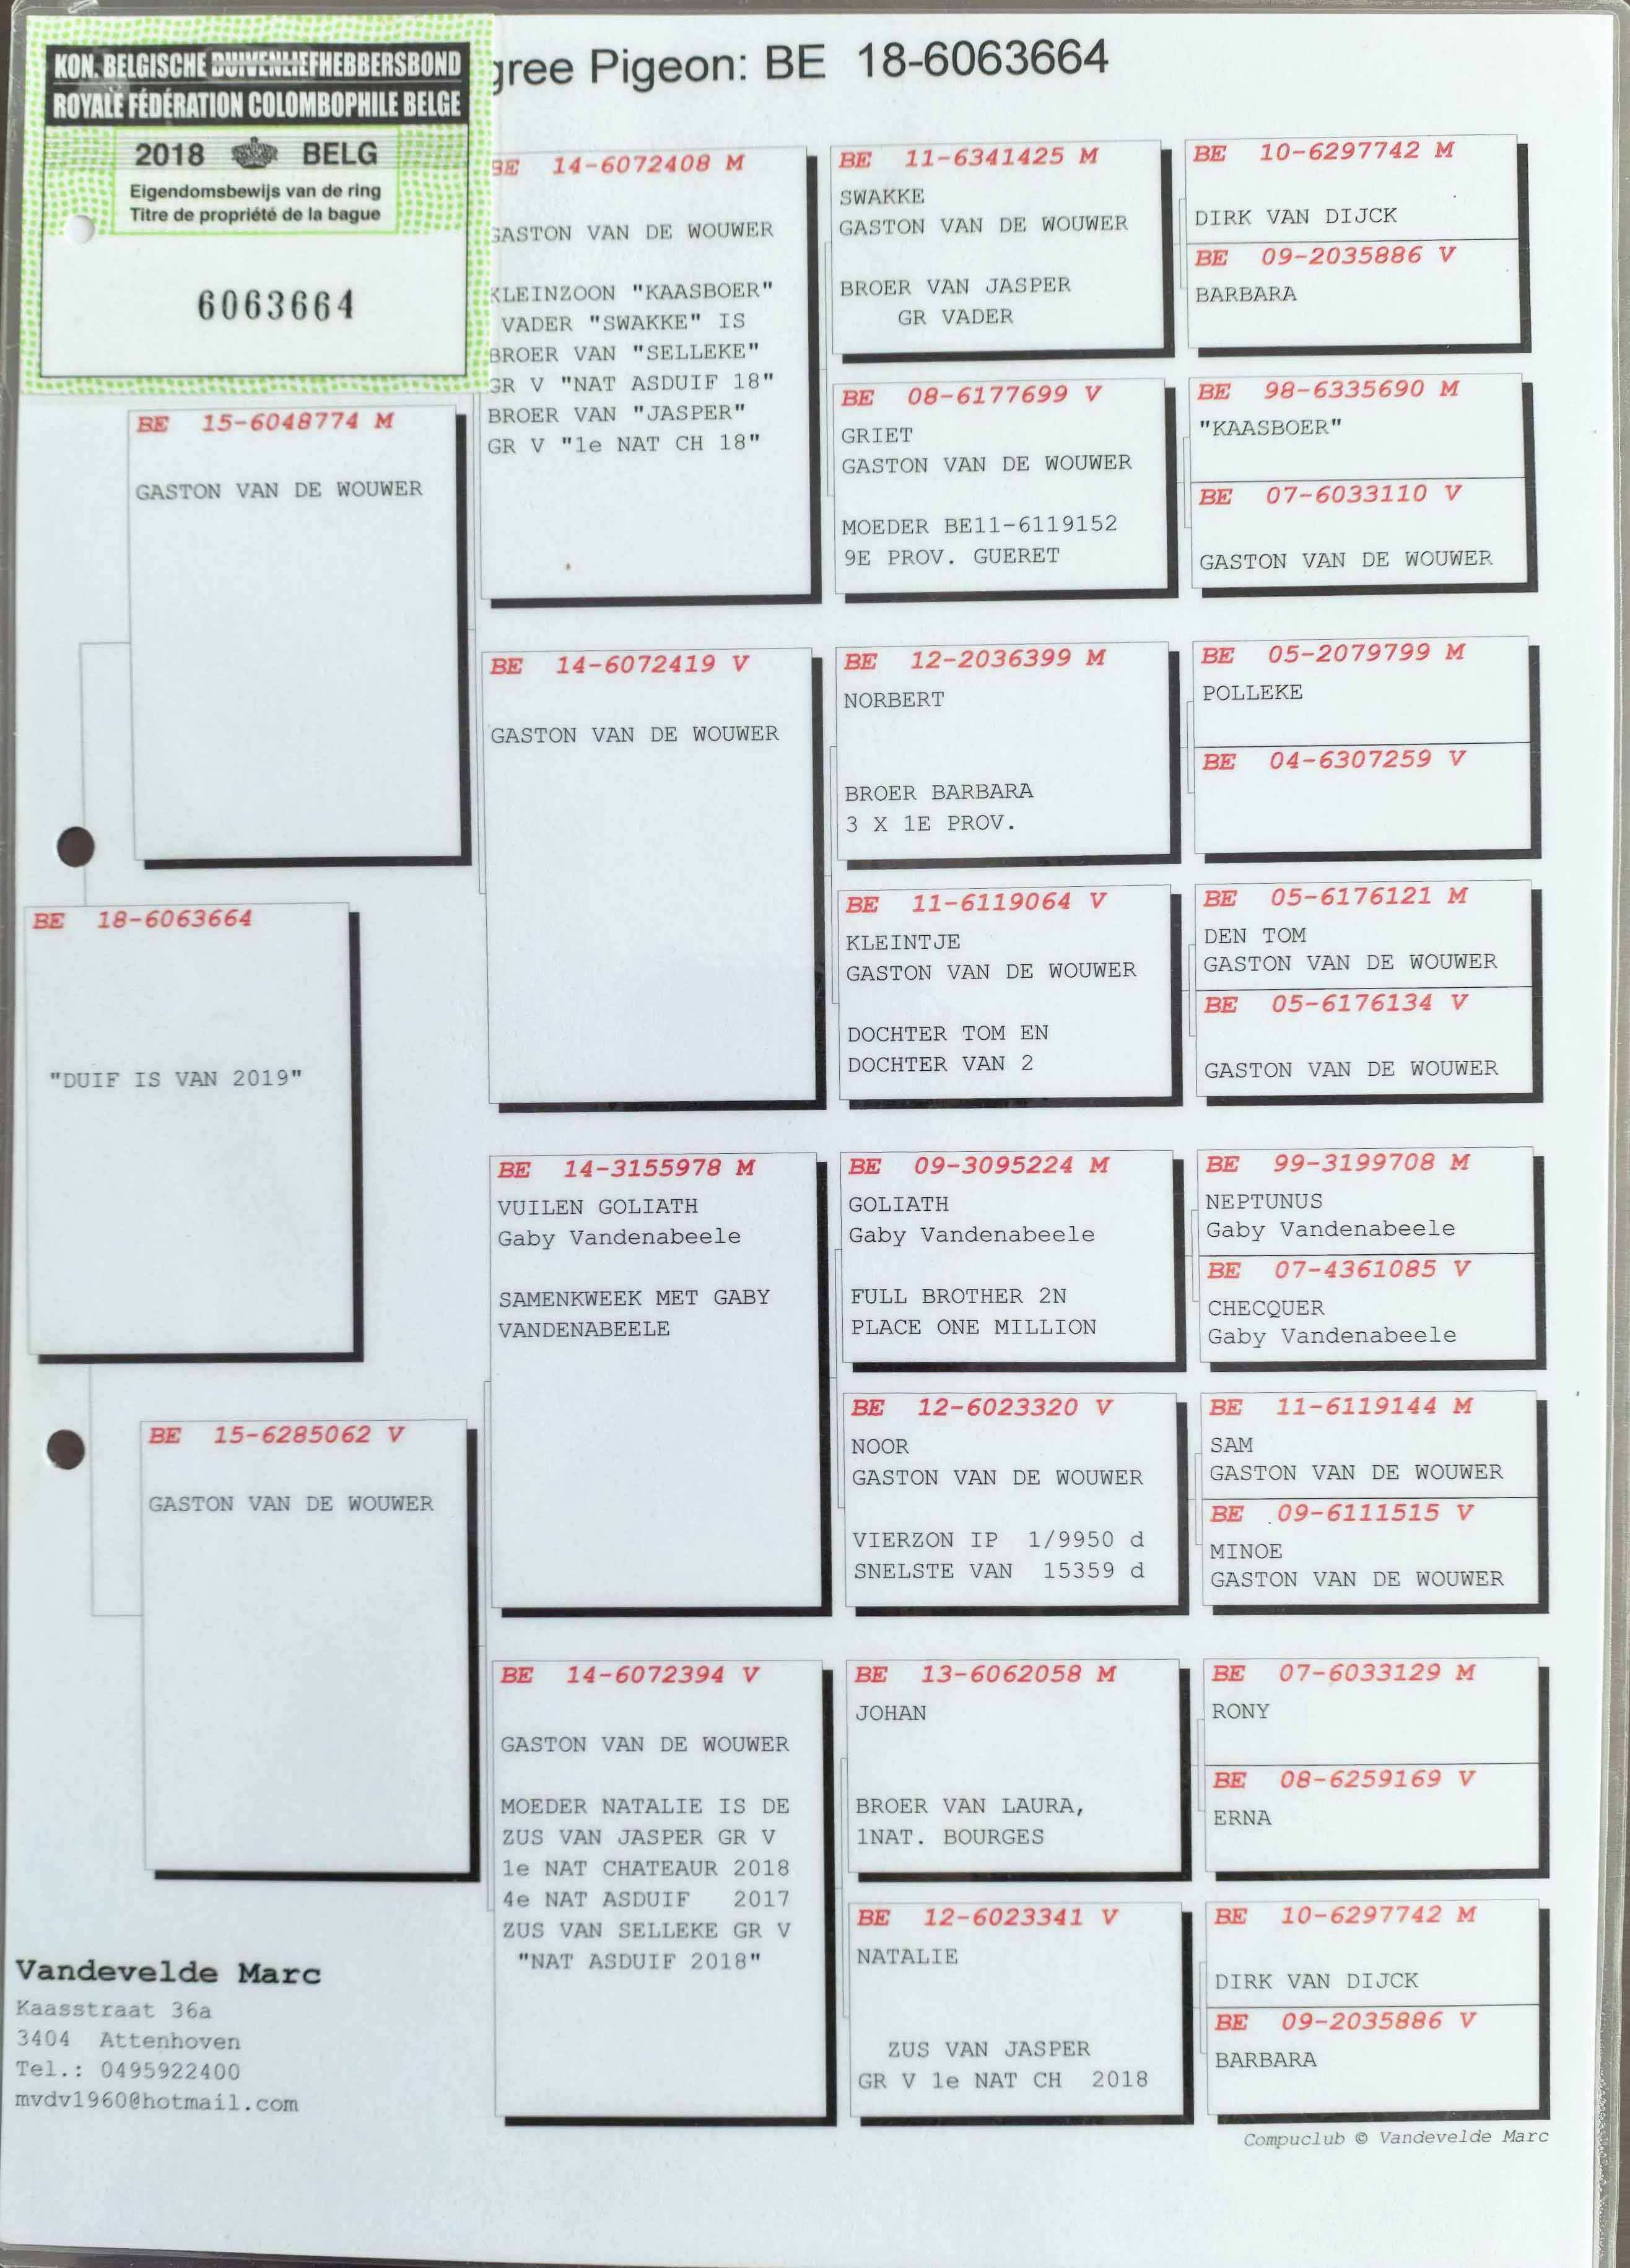 KON. BELGISCHE DUIVENLIEFHEBBERSBOND
ROYALE FÉDÉRATION COLOMBOPHILE BELGE
2018 BELG
Eigendomsbewijs van de ring
Titre de propriété de la bague
6063664
gree Pigeon: BE 18-6063664
BE 18-6063664
"DUIF IS VAN 2019"
BE 15-6048774 M
GASTON VAN DE WOUWER
BE 15-6285062 V
GASTON VAN DE WOUWER
BE 14-6072408 M
GASTON VAN DE WOUWER
KLEINZOON "KAASBOER"
VADER "SWAKKE" IS
BROER VAN "SELLEKE"
GR V "NAT ASDUIF 18"
BROER VAN "JASPER"
GR V "1e NAT CH 18"
BE 14-6072419 V
GASTON VAN DE WOUWER
BE 14-3155978 M
VUILEN GOLIATH
Gaby Vandenabeele
SAMENKWEEK MET GABY
VANDENABEELE
BE 14-6072394 V
GASTON VAN DE WOUWER
MOEDER NATALIE IS DE
ZUS VAN JASPER GR V
1e NAT CHATEAUR 2018
4e NAT ASDUIF 2017
ZUS VAN SELLEKE GR V
"NAT ASDUIF 2018"
BE 11-6341425 M
SWAKKE
GASTON VAN DE WOUWER
BROER VAN JASPER
GR VADER
BE 08-6177699 V
GRIET
GASTON VAN DE WOUWER
MOEDER BE11-6119152
9E PROV. GUERET
BE 12-2036399 M
NORBERT
BROER BARBARA
3 X 1E PROV.
BE 11-6119064 V
KLEINTJE
GASTON VAN DE WOUWER
DOCHTER TOM EN
DOCHTER VAN 2
BE 09-3095224 M
GOLIATH
Gaby Vandenabeele
FULL BROTHER 2N
PLACE ONE MILLION
BE 12-6023320 V
NOOR
GASTON VAN DE WOUWER
VIERZON IP 1/9950 d
SNELSTE VAN 15359 d
BE 13-6062058 M
JOHAN
BROER VAN LAURA,
1NAT. BOURGES
BE 12-6023341 V
NATALIE
ZUS VAN JASPER
GR V 1e NAT CH 2018
BE 10-6297742 M
DIRK VAN DIJCK
BE 09-2035886 V
BARBARA
BE 98-6335690 M
"KAASBOER"
BE 07-6033110 V
GASTON VAN DE WOUWER
BE 05-2079799 M
POLLEKE
BE 04-6307259 V
BE 05-6176121 M
DEN TOM
GASTON VAN DE WOUWER
BE 05-6176134 V
GASTON VAN DE WOUWER
BE 99-3199708 M
NEPTUNUS
Gaby Vandenabeele
BE 07-4361085 V
CHECQUER
Gaby Vandenabeele
BE 11-6119144 M
SAM
GASTON VAN DE WOUWER
BE 09-6111515 V
MINOE
GASTON VAN DE WOUWER
BE 07-6033129 M
RONY
BE 08-6259169 V
ERNA
BE 10-6297742 M
DIRK VAN DIJCK
BE 09-2035886 V
BARBARA
Vandevelde Marc
Kaasstraat 36a
3404 Attenhoven
Tel.: 0495922400
mvdv1960@hotmail.com
Compuclub © Vandevelde Marc